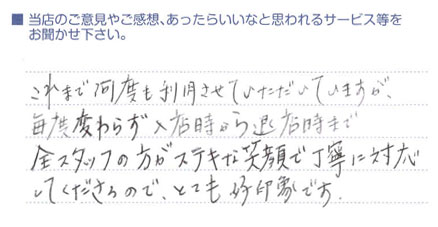 ■ 当店のご意見やご感想、あったらいいなと思われるサービス等を
お聞かせ下さい。
これまで何度も利用させていただいていますが、
毎度変わらず入店時から退店時まで
全スタッフの方がステキな笑顔で丁寧に対応
してくださるので、とても好印象です.